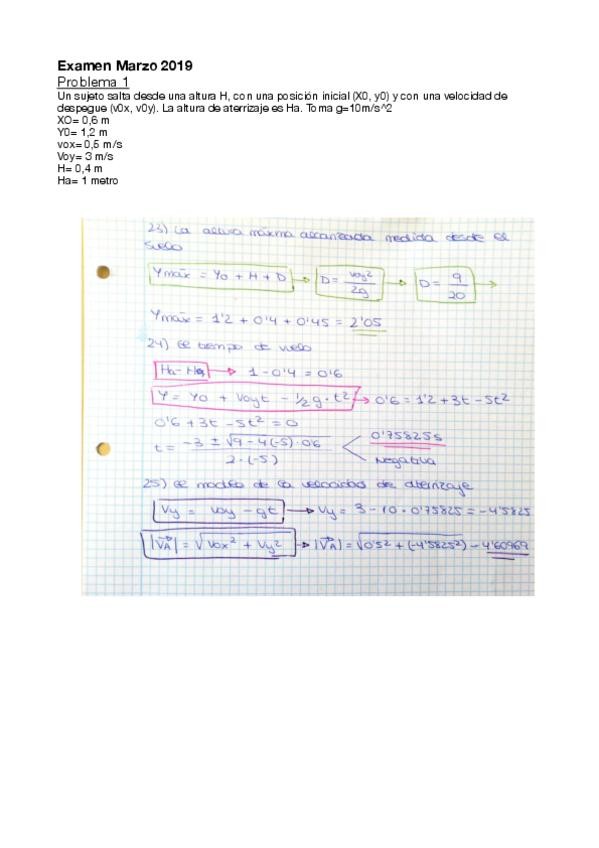 Examen Marzo 2019
Problema 1
Un sujeto salta desde una altura H, con una posición inicial (X0, y0) y con una velocidad de
despegue (v0x, v0y). La altura de aterrizaje es Ha. Toma g=10m/s^2
XO= 0,6 m
Y0= 1,2 m
vox= 0,5 m/s
Voy= 3 m/s
H= 0,4 m
Ha= 1 metro
23) La altura máxima alcanzada medida desde el
suelo
Ymáx = Yo + H + D → D = voy²/2g → D = 9/20 →
Ymáx = 1'2 + 0'4 + 0'45 = 2'05
24) El tiempo de vuelo
Ha - H → 1 - 0'4 = 0'6
Y = Yo + Voyt - 1/2 g · t² → 0'6 = 1'2 + 3t - 5t²
0'6 + 3t - 5t² = 0
t = -3 ± √9 - 4(-5) · 0'6 / 2 · (-5) < 0'75825s
Negativa
25) El modulo de la velocidad de aterrizaje
Vy = voy - gt → Vy = 3 - 10 · 0'75825 = -4'5825
|VA| = √vox² + Vy² → |VA| = √0'5² + (-4'5825²) - 4'60969